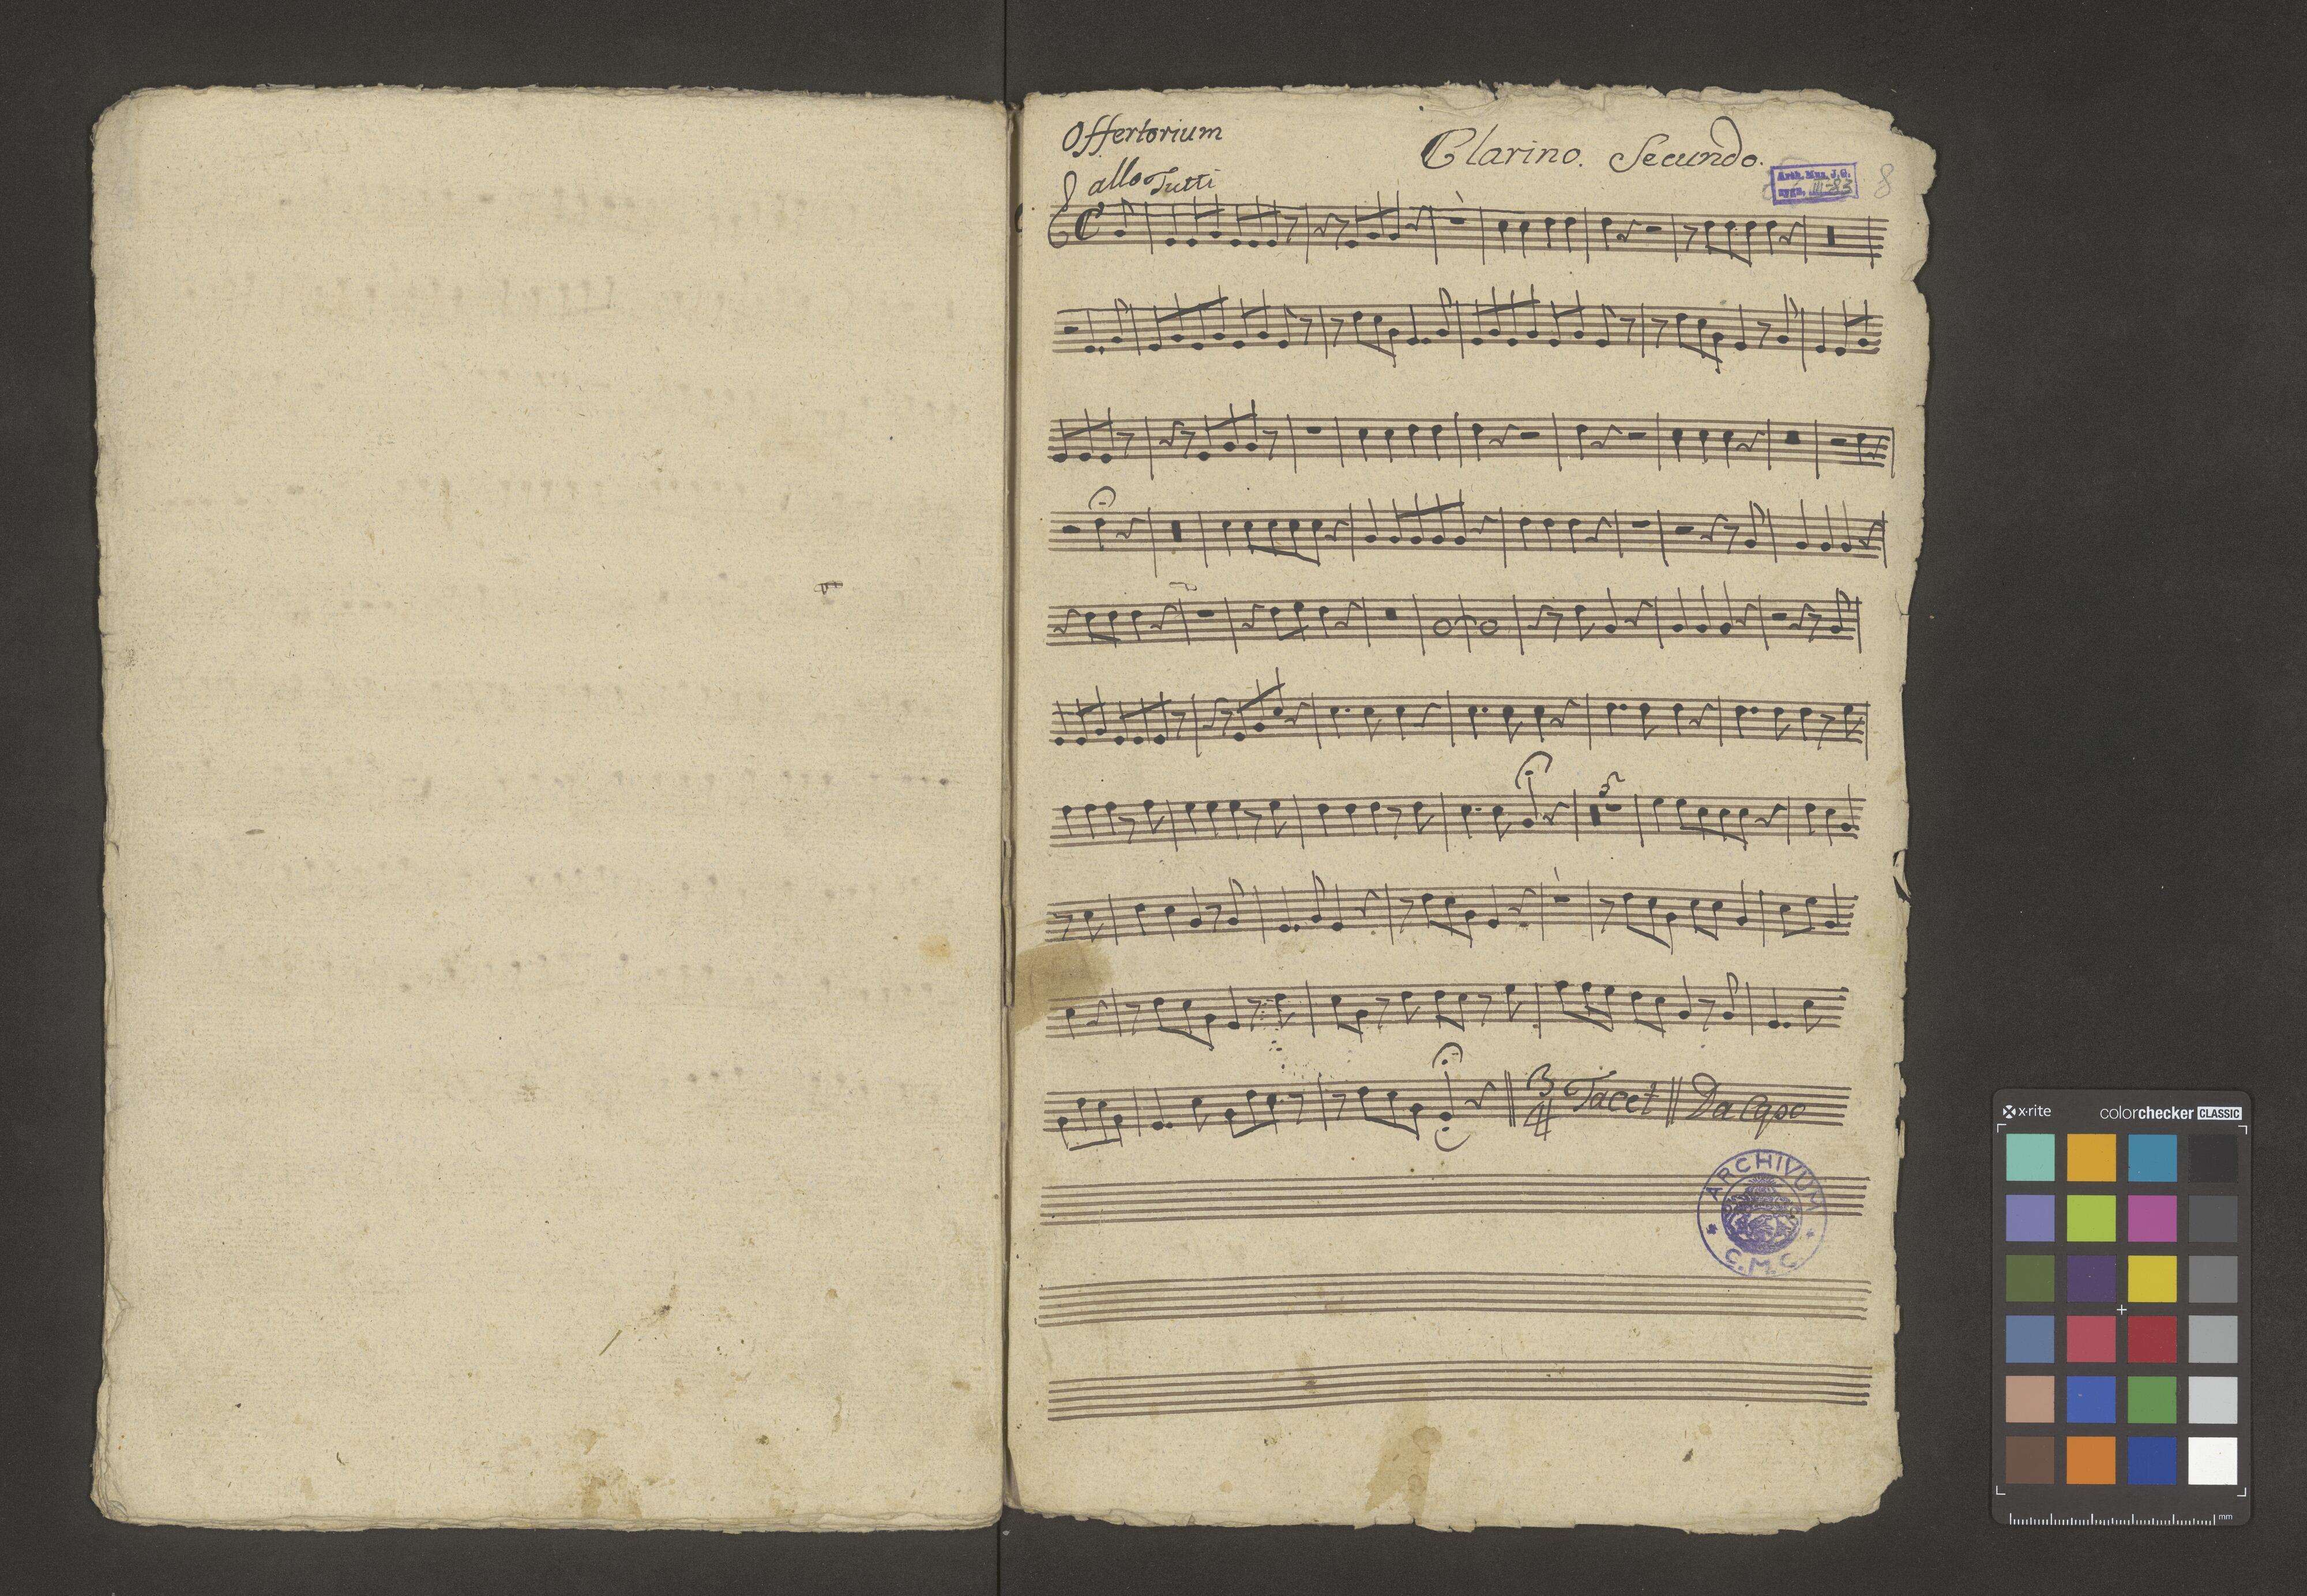 Offertorium
Clarino. Secundo.
allo Tutti
Arch. Muz. J. G.
sygn. III-83
8
5
3
4 Tacet Da Capo
ARCHIVUM
C. M. C.
x-rite colorchecker CLASSIC
mm